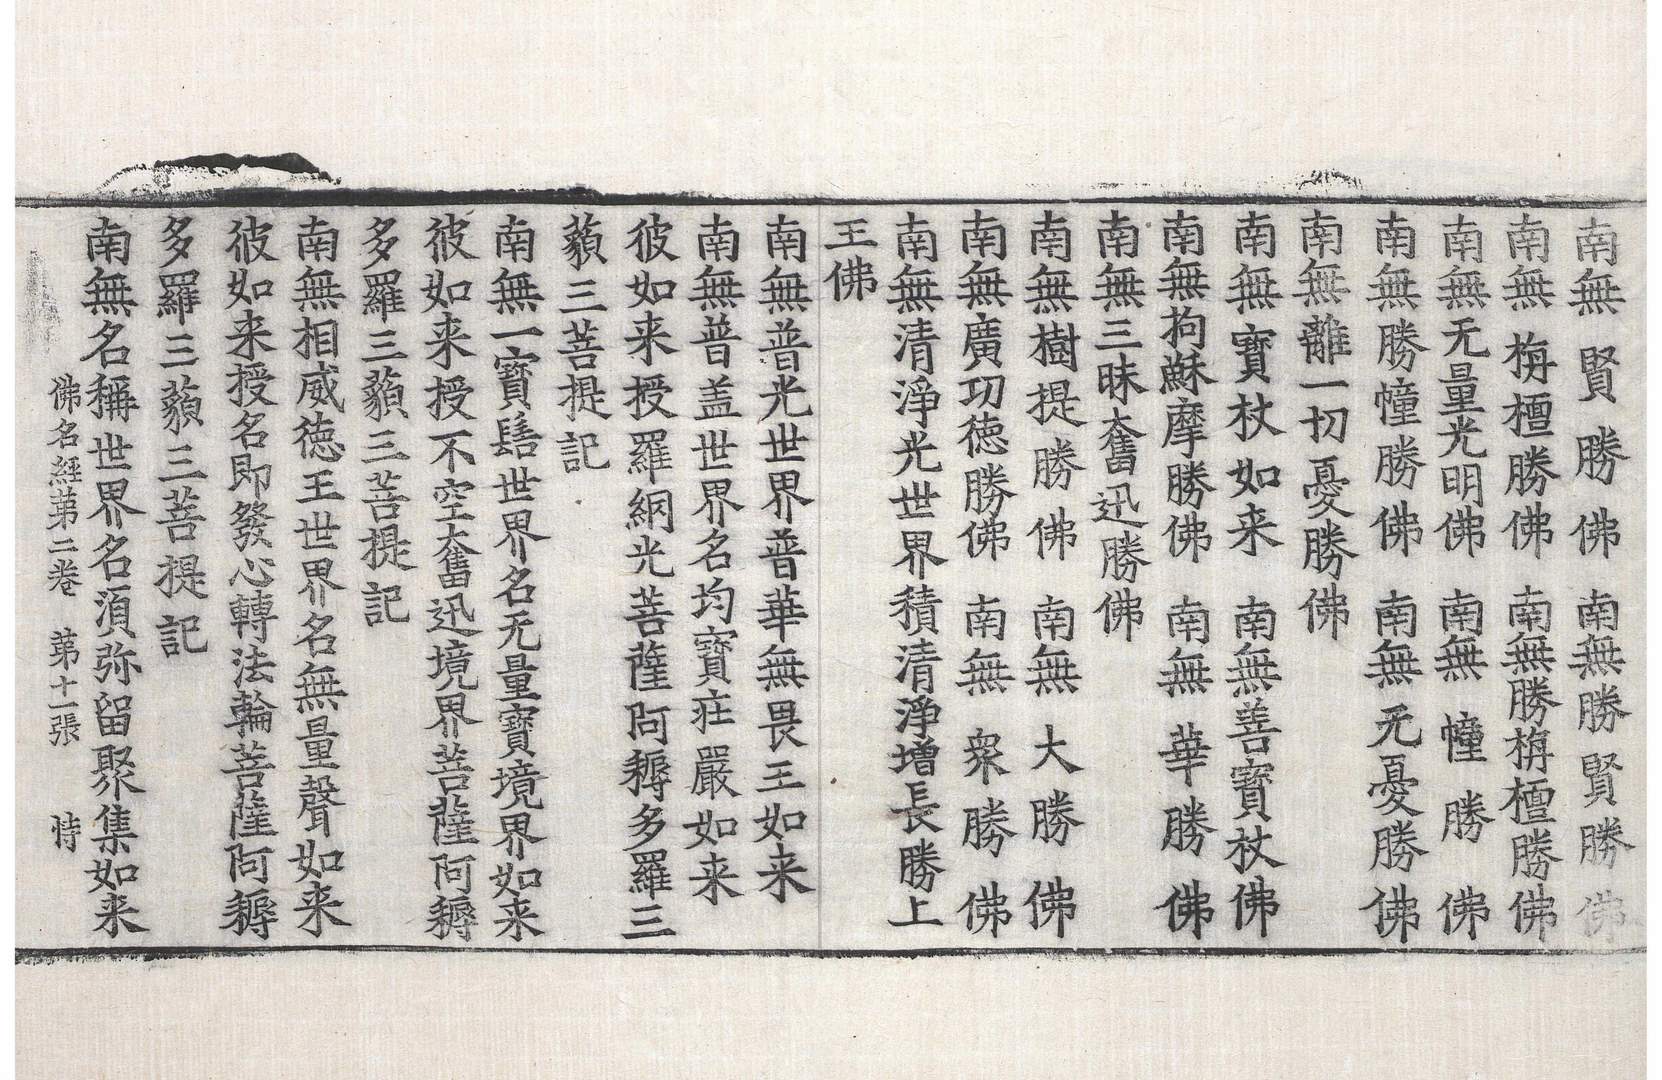 南無賢勝佛　南無勝賢勝佛
南無栴檀勝佛　南無勝栴檀勝佛
南無无量光明佛　南無幢勝佛
南無勝幢勝佛　南無无憂勝佛
南無離一切憂勝佛
南無寶杖如来　南無善寶杖佛
南無拘蘇摩勝佛　南無華勝佛
南無三昧奮迅勝佛
南無樹提勝佛　南無大勝佛
南無廣功徳勝佛　南無衆勝佛
南無清淨光世界積清淨增長勝上
王佛
南無普光世界普華無畏王如来
南無普盖世界名均寳荘嚴如来
彼如来授羅網光菩薩阿耨多羅三
藐三菩提記
南無一寳髻世界名无量寳境界如来
彼如来授不空奮迅境界菩薩阿耨
多羅三藐三菩提記
南無相威徳王世界名無量聲如来
彼如来授名即發心轉法輪菩薩阿耨
多羅三藐三菩提記
南無名稱世界名湏弥留聚集如来
佛名經苐二卷　苐十一張　恃